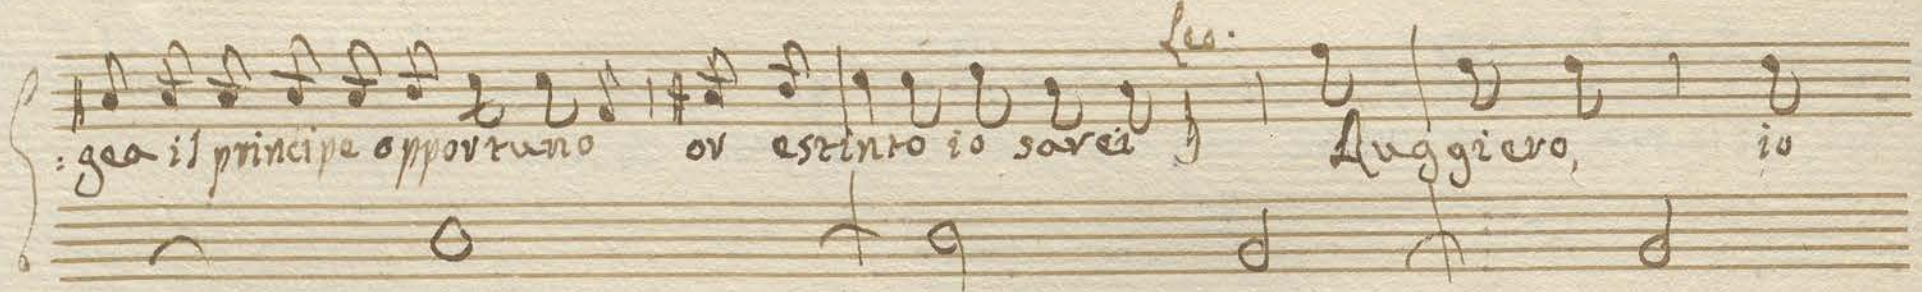 Leo.
:gea il principe opportuno or estinto io sarei Ruggiero, io